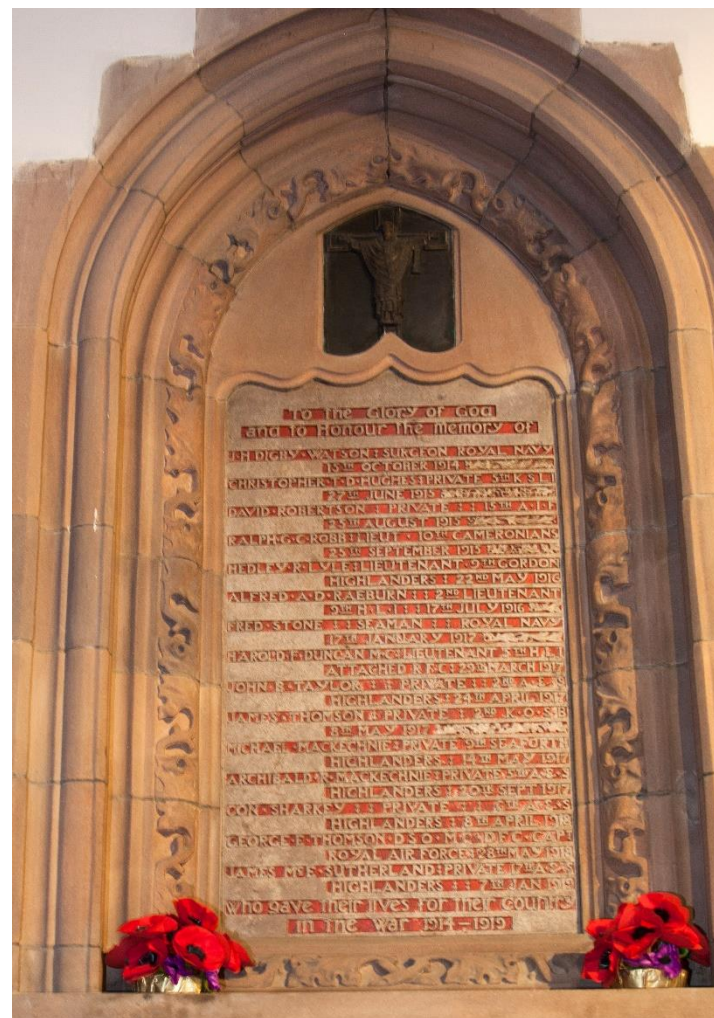 To the Glory of God
and to Honour the memory of
J·H DIGBY·WATSON : SURGEON ROYAL NAVY
15TH OCTOBER 1914
CHRISTOPHER·T·D·HUGHES : PRIVATE 5TH K S L I
27TH JUNE 1915
DAVID·ROBERTSON : PRIVATE : : 15TH A·I·F
23TH AUGUST 1915
RALPH·G·C·ROBB : LIEUT· 10TH CAMERONIANS
25TH SEPTEMBER 1915
HEDLEY·R·LYLE : LIEUTENANT·9TH GORDON
HIGHLANDERS : 22ND MAY 1916
ALFRED·A·D·RAEBURN : : 2ND LIEUTENANT
9TH H·L·I : : 17TH JULY 1916
FRED·STONE : : SEAMAN : : ROYAL NAVY
12TH JANUARY 1917
HAROLD·F·DUNCAN M·C : LIEUTENANT 5TH H·L·I
ATTACHED R·F·C : 29TH MARCH 1917
JOHN·B·TAYLOR : : PRIVATE : : 2ND A·&·S
HIGHLANDERS : 24TH APRIL 1917
JAMES·THOMSON : PRIVATE : 2ND K·O·S·B
8TH MAY 1917
MICHAEL·MACKECHNIE : PRIVATE 9TH SEAFORTH
HIGHLANDERS : 14TH MAY 1917
ARCHIBALD·R·MACKECHNIE : PRIVATE A·&·S
HIGHLANDERS : 20TH SEPT 1917
CON·SHARKEY : : PRIVATE : : A·&·S
HIGHLANDERS : 8TH APRIL 1918
GEORGE·E·THOMSON D·S·O·M·C·D·F·C·CAPT
ROYAL AIR FORCE : MAY 1918
JAMES MCE·SUTHERLAND : PRIVATE A·&·S
HIGHLANDERS : : 7TH JAN 1919
who gave their lives for their Country
in the War 1914–1919